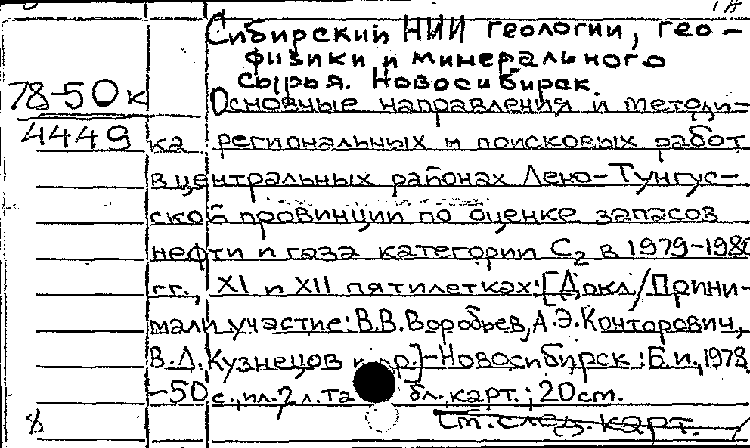 Сибирский НИИ геологии, гео-
физики и минерального
сырья. Новосибирск.
78-50к
Основные направления и методи-
4449
ка региональных и поисковых работ
в центральных районах Лено-Тунгус-
ской провинции по оценке запасов
нефти и газа категории С₂ в 1979-1980
гг., XI и XII пятилетках: [Докл/Прини-
мали участие: В.В.Воробьев, А.Э.Конторович,
В.Д.Кузнецов и др.]-Новосибирск: Б.и., 1978
-50с., ил. 2 л. та бл. карт.; 20см.
8
См. след. карт.